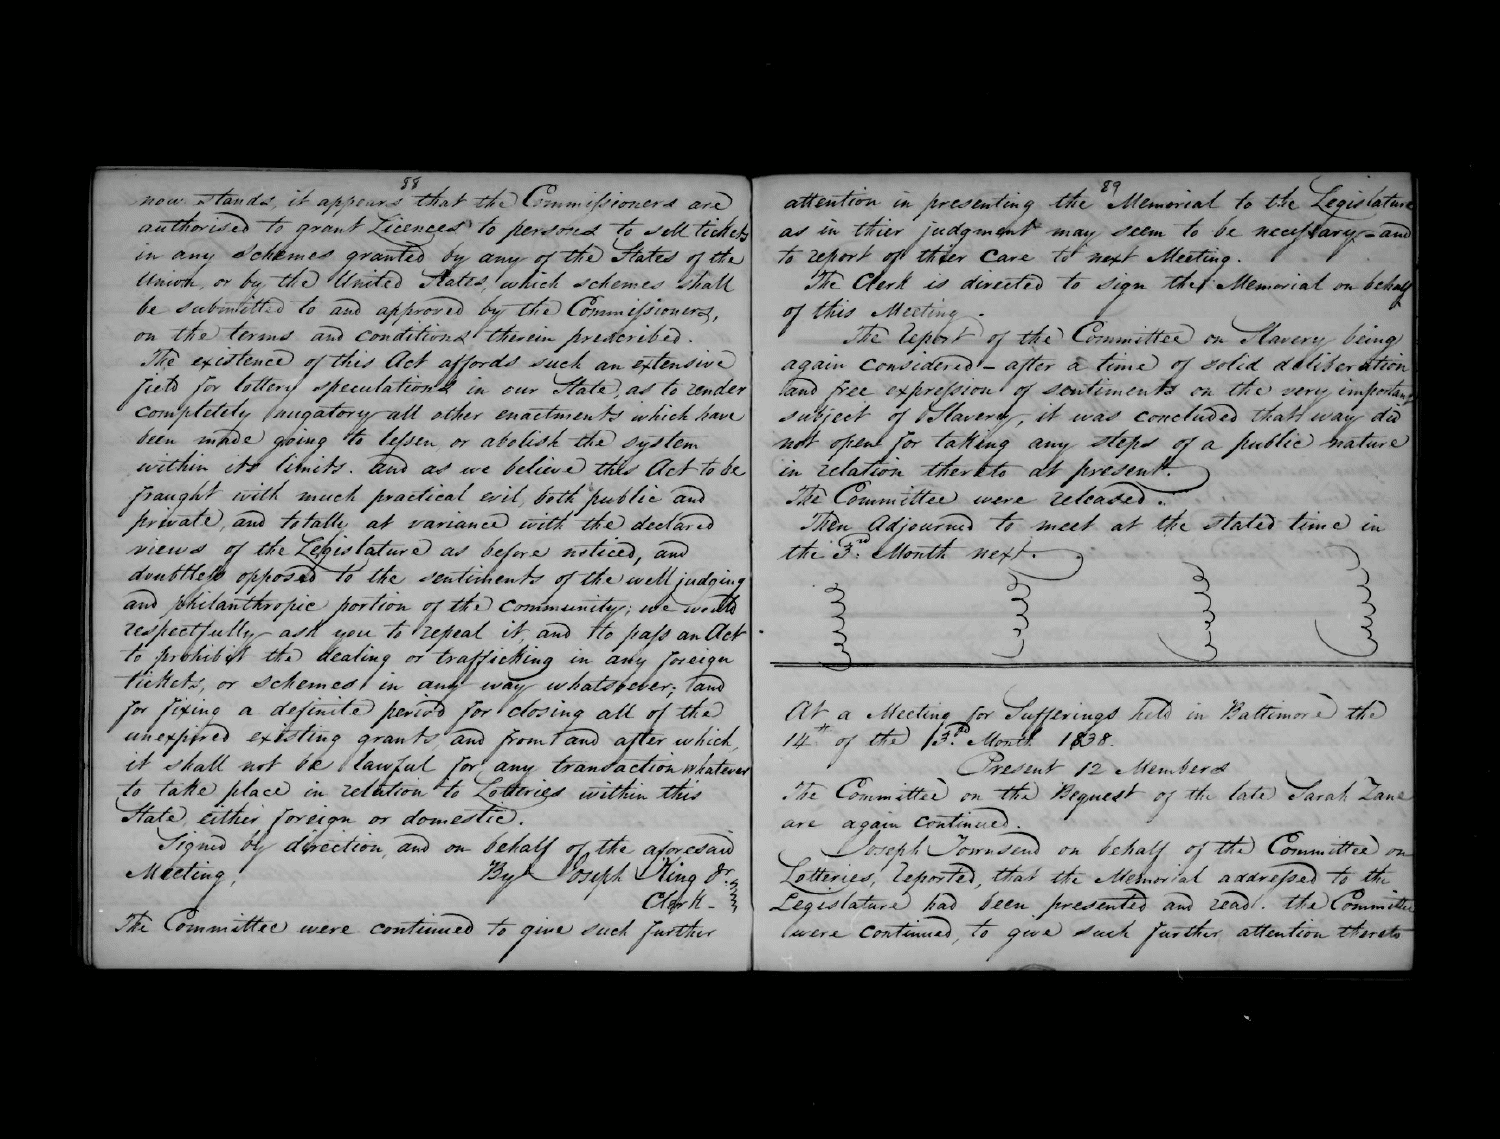 88
now stands, it appears that the Commissioners are
authorised to grant Licences to persons to sell tickets
in any schemes granted by any of the States of the
Union, or by the United States, which schemes shall
be submitted to and approved by the Commissioners,
on the terms and conditions therein prescribed.
The existence of this Act affords such an extensive
field for lottery speculations in our State, as to render
completely nugatory all other enactments which have
been made going to lessen or abolish the system
within its limits. and as we believe this Act to be
fraught with much practical evil, both public and
private, and totally at variance with the declared
views of the Legislature as before noticed, and
doubtless opposed to the sentiments of the well judging
and philanthropic portion of the community; we would
respectfully ask you to repeal it, and to pass an Act
to prohibit the dealing or trafficking in any foreign
tickets, or schemes in any way whatsoever; and
for fixing a definite period for closing all of the
unexpired existing grants, and from and after which,
it shall not be lawful for any transaction whatever
to take place in relation to Lotteries within this
State, either foreign or domestic.
Signed by direction, and on behalf of the aforesaid
Meeting, By Joseph King Jr.
Clerk -
The Committee were continued to give such further
89
attention in presenting the Memorial to the Legislature
as in thier judgment may seem to be necessary - and
to report of thier care to next Meeting.
The Clerk is directed to sign the Memorial on behalf
of this Meeting.
The report of the Committee on Slavery being
again considered - after a time of solid deliberation
and free expression of sentiments on the very important
subject of Slavery, it was concluded that way did
not open for taking any steps of a public nature
in relation thereto at present.
The Committee were released.
Then Adjourned to meet at the stated time in
the 3rd. Month next.
At a Meeting for Sufferings held in Baltimore the
14th of the 3rd. Month 1838.
Present 12 Members
The Committee on the Bequest of the late Sarah Zane
are again continued.
Joseph Townsend on behalf of the Committee on
Lotteries, reported, that the Memorial addressed to the
Legislature had been presented and read. the Committee
were continued, to give such further attention thereto